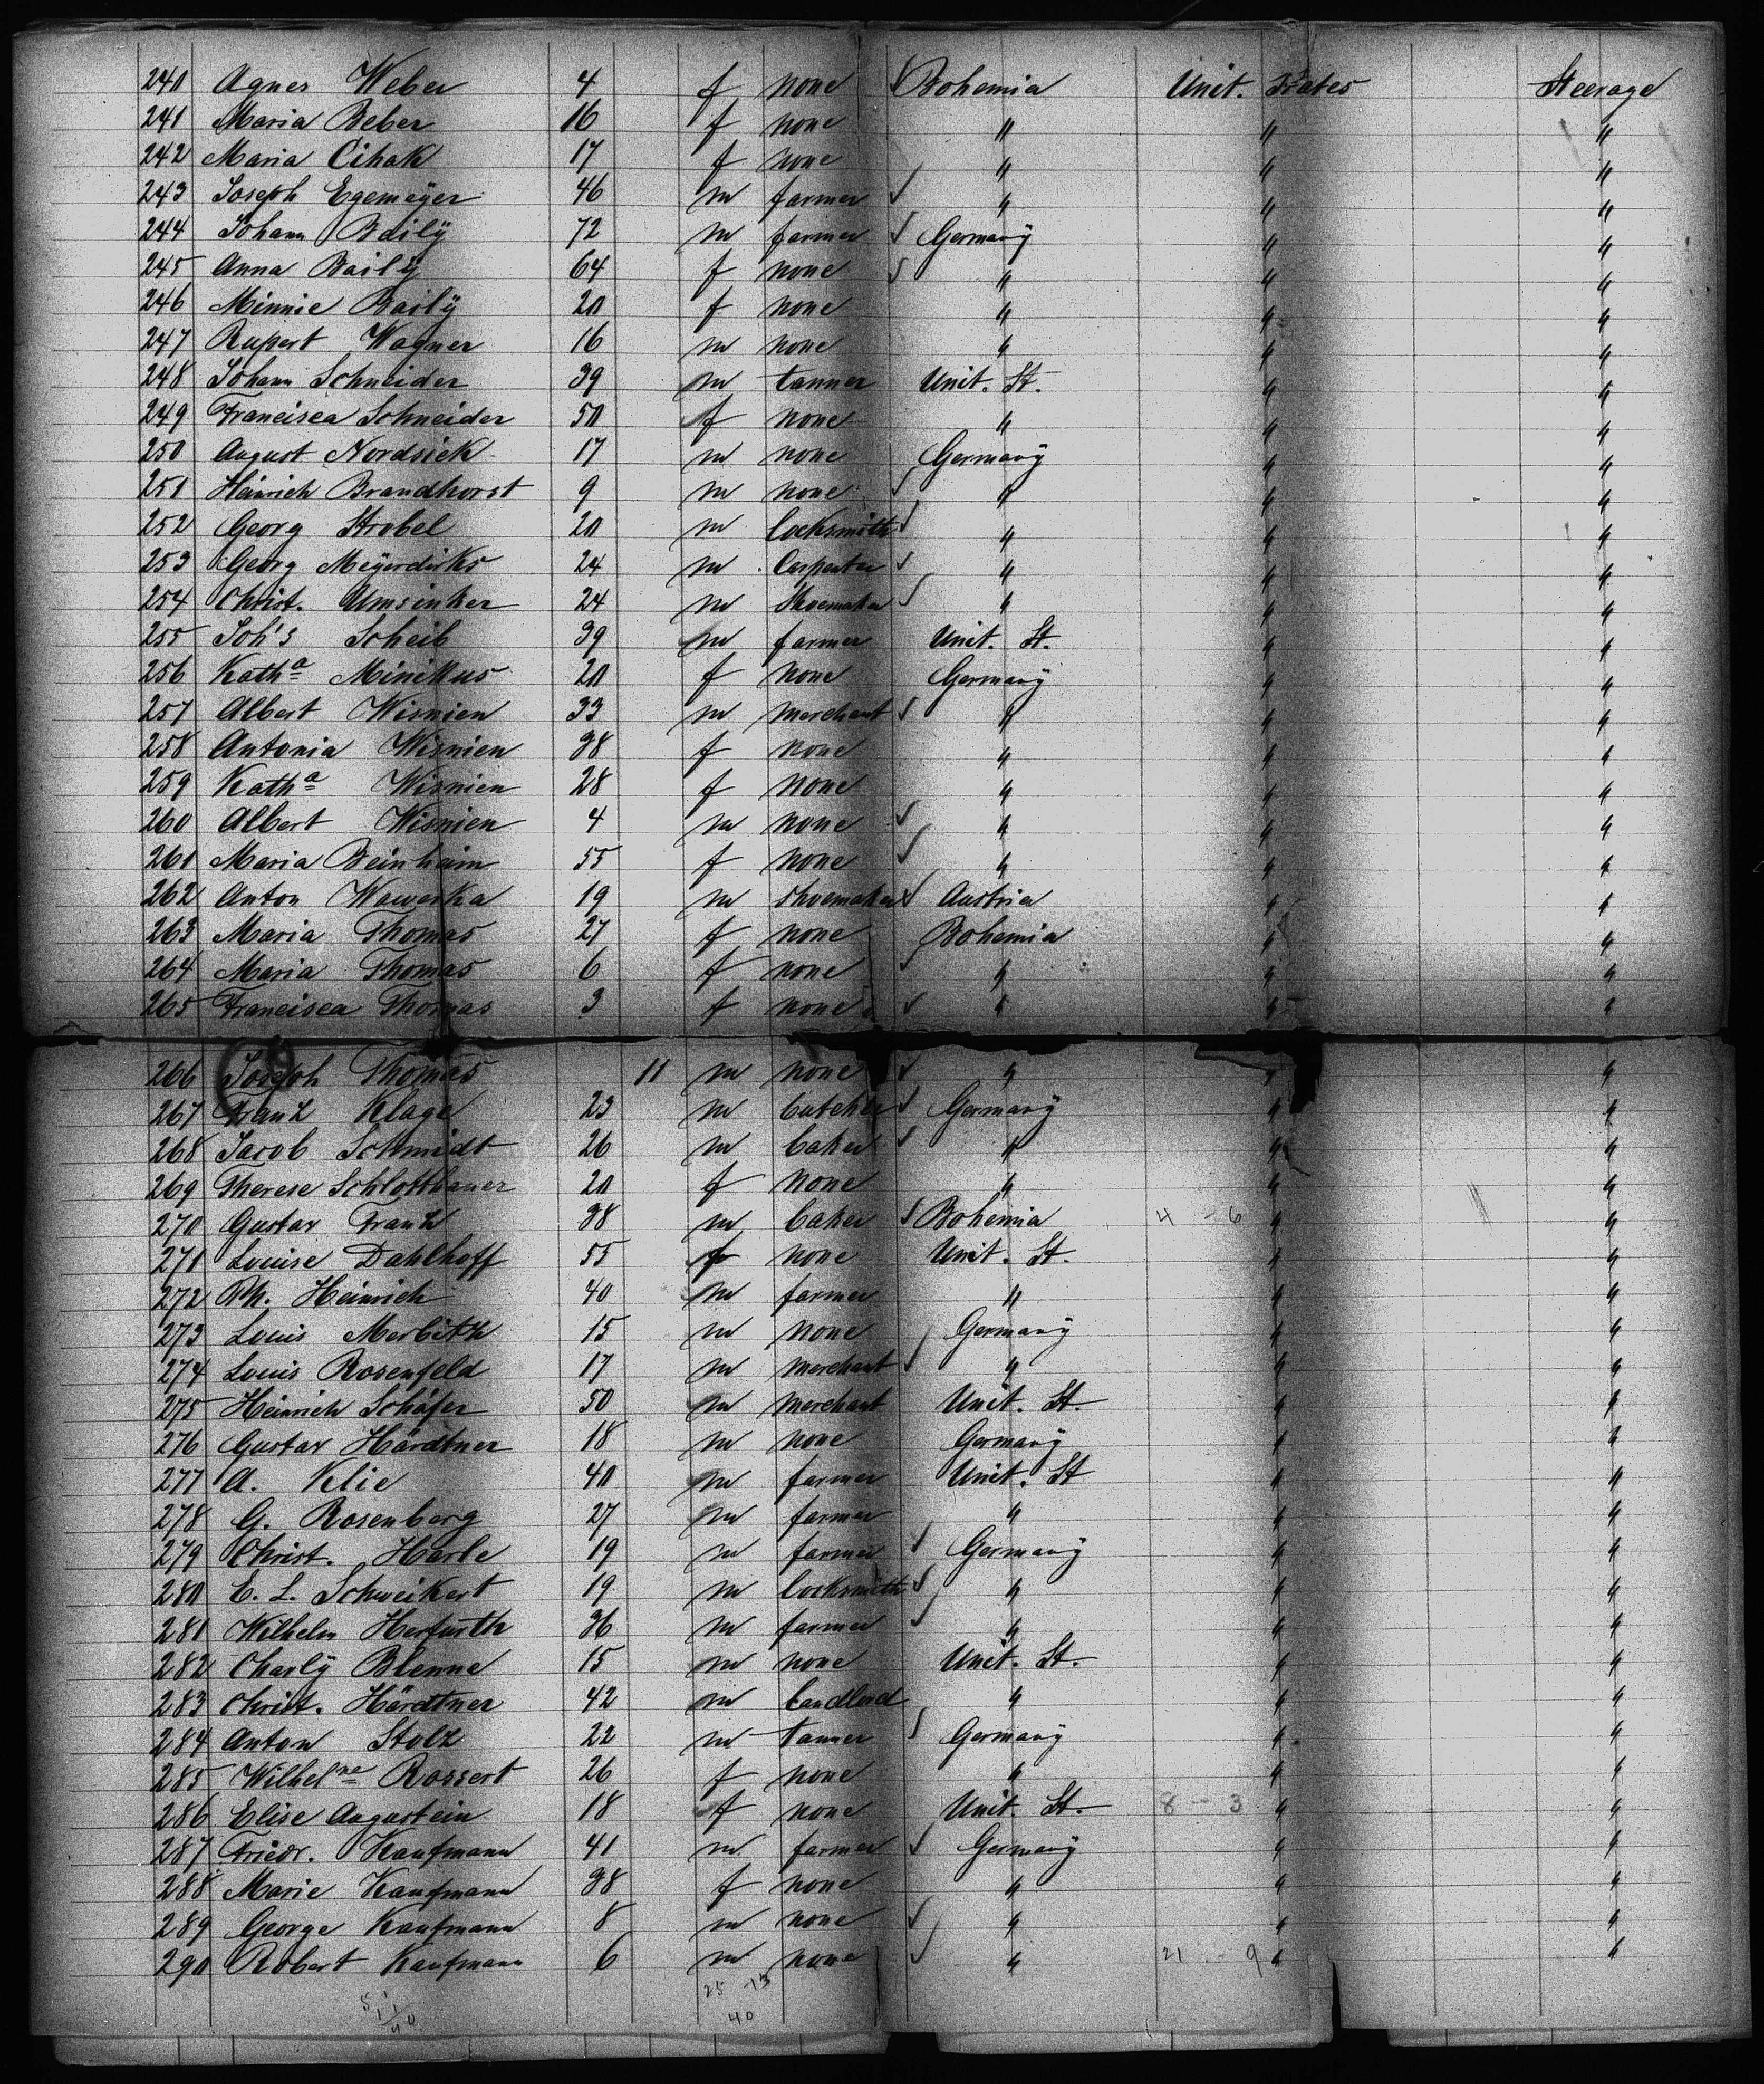 240 Agnes Weber 4 f none ✓ Bohemia Unit. States Steerage
241 Maria Beber 16 f none " " "
242 Maria Cihak 17 f none " " "
243 Joseph Egemeÿer 46 m farmer ✓ " " "
244 Johann Bailÿ 72 m farmer ✓ Germanÿ " "
245 Anna Bailÿ 64 f none ✓ " " "
246 Minnie Bailÿ 20 f none " " "
247 Rupert Wagner 16 m none " " "
248 Johann Schneider 39 m tanner Unit. St. " "
249 Francisca Schneider 50 f none " " "
250 August Nordsiek 17 m none Germanÿ " "
251 Heinrich Brandhorst 9 m none ✓ " " "
252 Georg Strobel 20 m locksmith ✓ " " "
253 Georg Meÿerdirks 24 m Carpenter ✓ " " "
254 Christ. Umsinker 24 m Shoemaker ✓ " " "
255 Joh's Scheib 39 m farmer Unit. St. " "
256 Kath.a Minikus 20 f none Germanÿ " "
257 Albert Wisnien 33 m merchant ✓ " " "
258 Antonia Wisnien 38 f none " " "
259 Kath.a Wisnien 28 f none " " "
260 Albert Wisnien 4 m none ✓ " " "
261 Maria Beinheim 55 f none ✓ " " "
262 Anton Wawerka 19 m shoemaker ✓ Austria " "
263 Maria Thomas 27 f none Bohemia " "
264 Maria Thomas 6 f none ✓ " " "
265 Francisca Thomas 3 f none ✓ " " "
266 Joseph Thomas 11 m none ✓ " " "
267 Franz Klage 23 m butcher ✓ Germanÿ " "
268 Jacob Schmidt 26 m baker ✓ " " "
269 Therese Schlotthauer 20 f none " " "
270 Gustav Frank 38 m baker ✓ Bohemia 4 - 6 " "
271 Louise Dahlhoff 55 f none Unit. St. " "
272 Ph. Heinrich 40 m farmer " " "
273 Louis Merbitz 15 m none ✓ Germanÿ " "
274 Louis Rosenfeld 17 m merchant ✓ " " "
275 Heinrich Schäfer 50 m merchant Unit. St. " "
276 Gustav Härdtner 18 m none Germanÿ " "
277 A. Klie 40 m farmer Unit. St " "
278 G. Rosenberg 27 m farmer " " "
279 Christ. Harle 19 m farmer ✓ Germanÿ " "
280 E. L. Schweikert 19 m locksmith ✓ " " "
281 Wilhelm Herfurth 36 m farmer ✓ " " "
282 Charlÿ Blenne 15 m none Unit. St. " "
283 Christ. Härdtner 42 m landlord " " "
284 Anton Stolz 22 m tanner ✓ Germanÿ " "
285 Wilhelne Rossert 26 f none " " "
286 Elise Augustein 18 f none Unit. St. 8 - 3 " "
287 Friedr. Kaufmann 41 m farmer ✓ Germanÿ " "
288 Marie Kaufmann 38 f none " " "
289 George Kaufmann 8 m none ✓ " " "
290 Robert Kaufmann 6 m none ✓ " 21 - 9 " "
25 - 13
40